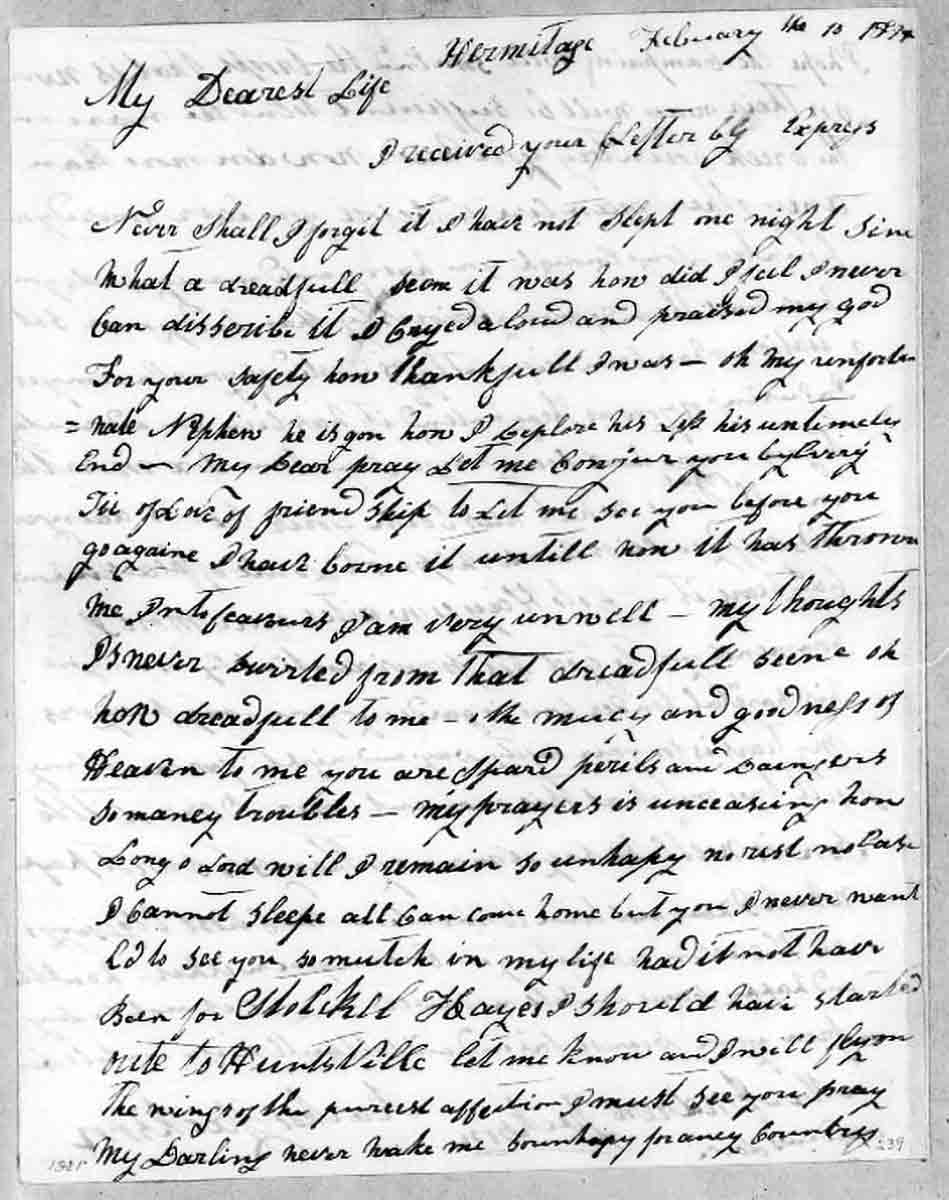 Hermitage February the 10 1814
My Dearest Life
I received your Letter by Express
Never Shall I forgit it I have not Slept one night Sinc
What a dreadfull Seen it was how did I feel I never
Can disscribe it I Cryed aloud and praised my god
For your safety how thankfull I was — oh my unfortu
= nate Nephew he is gon how I deplore his his untimely
End — My Dear pray Let me Conjur you by Every
Tie of Love of friend ship to Let me see you before you
go againe I have borne it untill now it has thrown
me Into feavours I am very unwell — my thoughts
Is never from that dreadfull scene oh
how dreadfull to me — the mercy and goodness of
Heaven to me you are Spard perils and Dangers
so maney troubles — my prayers is unceasing how
Long o Lord will I remain so unhapy no rest no Ease
I Cannot sleepe all Can come home but you I never want
Ed to see you so mutch in my life had it not have
Been for Stokell Hayes I should have started
oute to HuntsVille let me know and I will fly on
the wings of the purest affection I must see you pray
My Darling never make me unhapy for aney Country
1821 239